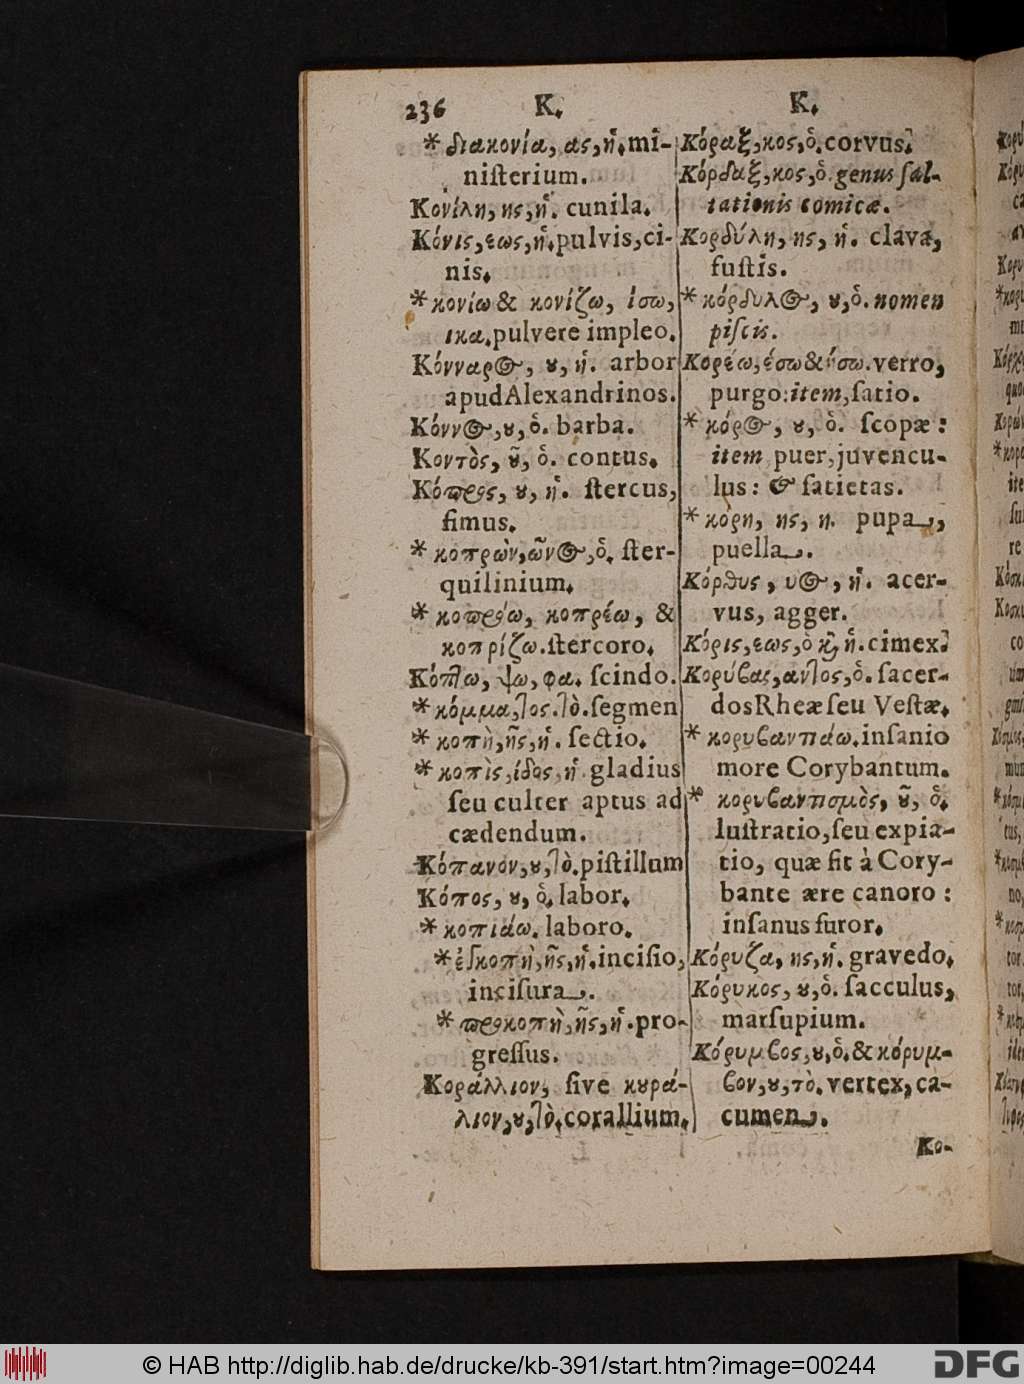 236 K. K.
* διακονία, ας, ἡ. mi-
niſterium.
Κονίλη, ης, ἡ. cunila.
Κόνις, εως, ἡ. pulvis, ci-
nis.
* κονίω & κονίζω, ίσω,
ικα. pulvere impleo.
Κόνναρος, ȣ, ἡ. arbor
apud Alexandrinos.
Κόννος, ȣ, ὁ. barba.
Κοντὸς, ȣ͂, ὁ. contus.
Κόπρος, ȣ, ἡ. ſtercus,
fimus.
* κοπρὼν, ῶνος, ὁ. ſter-
quilinium.
* κοπρόω, κοπρέω, &
κοπρίζω. ſtercoro.
Κόπτω, ψω, φα. ſcindo.
* κόμμα, τος. τὸ. ſegmen
* κοπὴ, ῆς, ἡ. ſectio.
* κοπὶς, ίδος, ἡ. gladius
ſeu culter aptus ad
cædendum.
Κόπανον, ȣ, τὸ. piſtillum
Κόπος, ȣ, ὁ. labor.
* κοπιάω. laboro.
* ἐσκοπὴ, ῆς, ἡ. inciſio,
inciſura.
* προκοπὴ, ῆς, ἡ. pro-
greſſus.
Κοράλλιον, ſive κȣρά-
λιον, ȣ, τὸ. corallium.
Κόραξ, κος, ὁ. corvus.
Κόρδαξ, κος, ὁ. genus ſal-
tationis comicæ.
Κορδύλη, ης, ἡ. clava,
fuſtis.
* κόρδυλος, ȣ, ὁ. nomen
piſcis.
Κορέω, έσω & ήσω. verro,
purgo: item, ſatio.
* κόρος, ȣ, ὁ. ſcopæ:
item puer, juvencu-
lus: & ſatietas.
* κόρη, ης, η. pupa,
puella.
Κόρθυς, υος, ἡ. acer-
vus, agger.
Κόρις, εως, ὁ κ̀ ἡ. cimex.
Κορύβας, αντος, ὁ. ſacer-
dos Rheæ ſeu Veſtæ.
* κορυβαντιάω. inſanio
more Corybantum.
* κορυβαντισμὸς, ȣ͂, ὁ.
luſtratio, ſeu expia-
tio, quæ fit à Cory-
bante ære canoro:
inſanus furor.
Κόρυζα, ης, ἡ. gravedo.
Κόρυκος, ȣ, ὁ. ſacculus,
marſupium.
Κόρυμβος, ȣ, ὁ. & κόρυμ-
βον, ȣ, τὸ. vertex, ca-
cumen.
Κο-
© HAB http://diglib.hab.de/drucke/kb-391/start.htm?image=00244
DFG